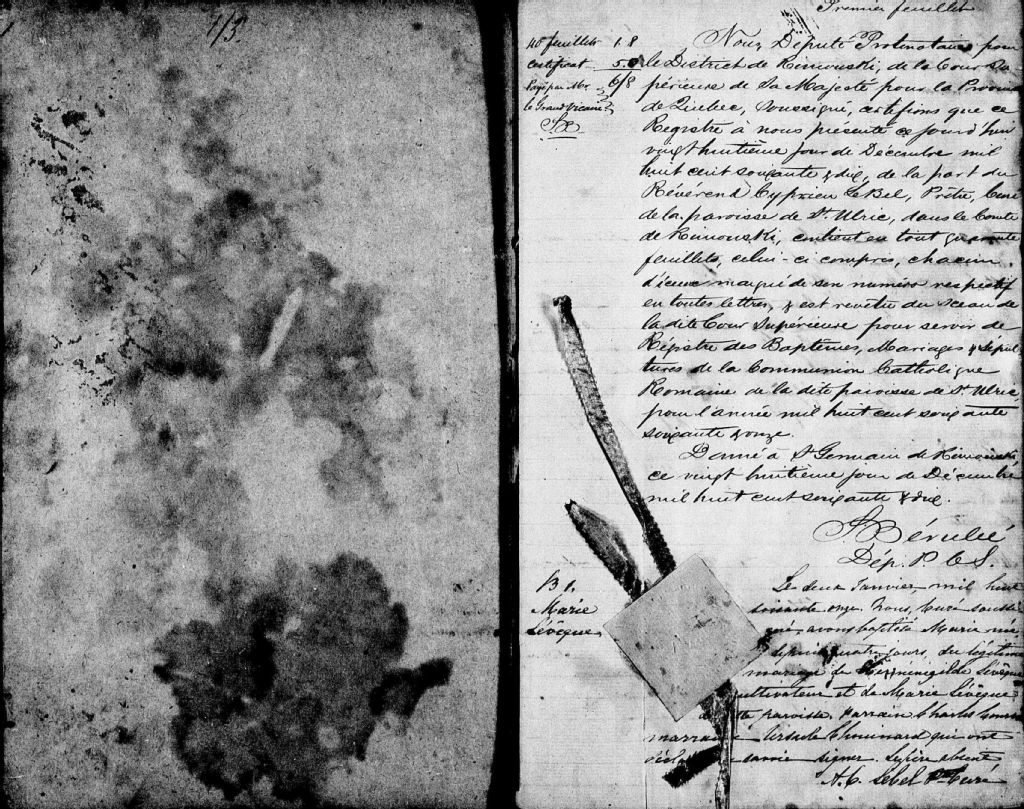 1/3
Premier feuillet
40 feuillets 1.8
Certificat 5.0
Payé par Mr 6/8
le Grand Vicaire
Nous Député Protonotaire pour
le District de Rimouski, de la Cour Su
périeure de Sa Majesté pour la Province
de Québec, soussigné, certifions que ce
Registre à nous présenté ce jourd'hui
vingt huitième jour de Décembre mil
huit cent soixante & dix, de la part du
Révérend Cyprien LeBel, Prêtre, Curé
de la paroisse de St. Ulric, dans le Comté
de Rimouski, contient en tout quarante
feuillets, celui-ci compris, chacun
d'iceux marqué de son numéro respectif
en toutes lettres, & est revêtu du sceau de
la dite Cour Supérieure pour servir de
Régistre des Baptêmes, Mariages & Sépul
tures de la Communion Catholique
Romaine de la dite paroisse de St. Ulric
pour l'année mil huit cent soixante
soixante & onze.
Donné à St Germain de Rimouski
ce vingt huitième jour de Décembre
mil huit cent soixante & dix.
Bérubé
Dép. P. C. S.
B 1.
Marie
Lévêque
Le deux Janvier, mil huit
soixante onze. Nous, Curé soussi
gné, avons baptisé Marie née
depuis quatre jours, du légitime
mariage de Herménégilde Lévêque
cultivateur et de Marie Lévêque
de paroisse. Parrain Charles
marraine Ursule Chouinard qui ont
savoir signer. Le père absent
A. C. Lebel Ptre Curé